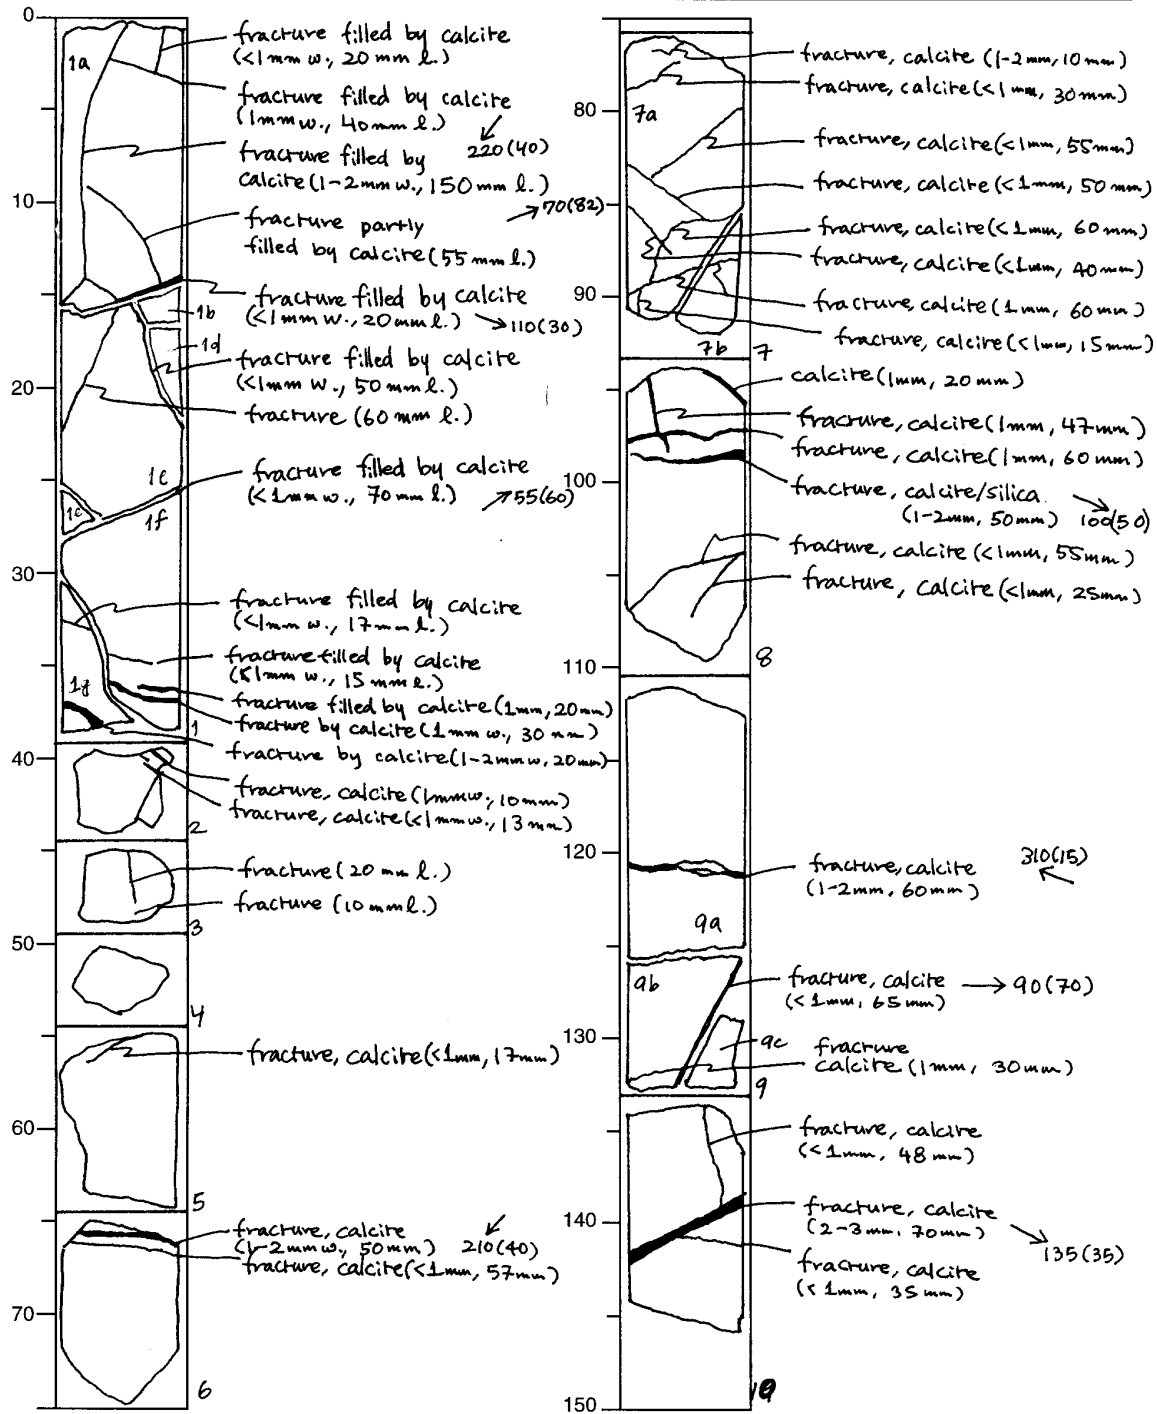 0
1a
fracture filled by calcite
(<1mm w., 20 mm l.)
fracture filled by calcite
(1mm w., 40mm l.)
220(40)
fracture filled by
calcite (1-2mm w., 150 mm l.)
70(82)
10
fracture partly
filled by calcite (55 mm l.)
fracture filled by calcite
(<1mm w., 20 mm l.)
110(30)
1b
1d
fracture filled by calcite
(<1mm w., 50 mm l.)
20
fracture (60 mm l.)
1c
fracture filled by calcite
(<1mm w., 70 mm l.)
55(60)
1e
1f
30
fracture filled by calcite
(<1mm w., 17mm l.)
fracture filled by calcite
(<1mm w., 15 mm l.)
1g
fracture filled by calcite (1mm, 20mm)
fracture by calcite (1mm w., 30 mm)
1
fracture by calcite (1-2mmw, 20mm)
40
fracture, calcite (1mmw., 10mm)
fracture, calcite (<1mmw., 13mm)
2
fracture (20 mm l.)
fracture (10 mm l.)
3
50
4
fracture, calcite (<1mm, 17mm)
60
5
fracture, calcite
(1-2mmw., 50mm)
210(40)
fracture, calcite (<1mm, 57mm)
70
6
fracture, calcite (1-2mm, 10mm)
fracture, calcite (<1mm, 30mm)
80
7a
fracture, calcite (<1mm, 55mm)
fracture, calcite (<1mm, 50mm)
fracture, calcite (<1mm, 60mm)
fracture, calcite (<1mm, 40mm)
90
fracture, calcite (1mm, 60mm)
fracture, calcite (<1mm, 15mm)
7b
7
calcite (1mm, 20mm)
fracture, calcite (1mm, 47mm)
fracture, calcite (1mm, 60mm)
100
fracture, calcite/silica
(1-2mm, 50mm)
100(50)
fracture, calcite (<1mm, 55mm)
fracture, calcite (<1mm, 25mm)
8
110
120
fracture, calcite
(1-2mm, 60mm)
310(15)
9a
9b
fracture, calcite
(<1mm, 65mm)
90(70)
130
9c
fracture
calcite (1mm, 30mm)
9
fracture, calcite
(<1mm, 48mm)
140
fracture, calcite
(2-3mm, 70mm)
135(35)
fracture, calcite
(<1mm, 35mm)
150
10